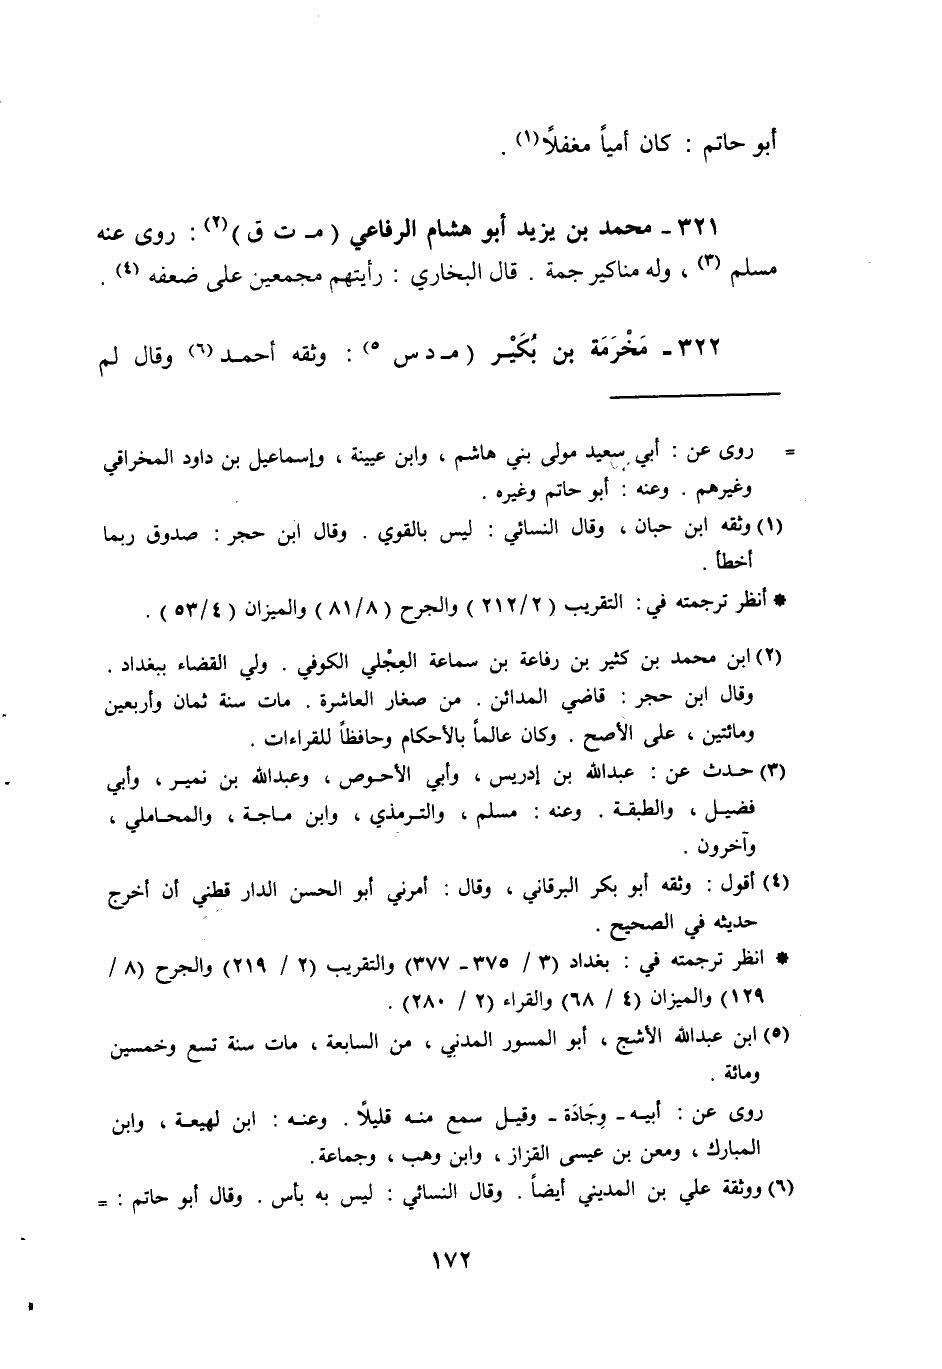 أبو حاتم : كان أمياً مغفلاً(١) .
٣٢١ ـ محمد بن يزيد أبو هشام الرفاعي ( مـ ت ق )(٢) : روى عنه
مسلم (٣) ، وله مناكير جمة . قال البخاري : رأيتهم مجمعين على ضعفه (٤) .
٣٢٢ ـ مَخْرَمَة بن بُكَيْـر ( مـ د س ٥) : وثقه أحمـد (٦) وقال لم
= روى عن : أبي سعيد مولى بني هاشم ، وابن عيينة ، وإسماعيل بن داود المخراقي
وغيرهم . وعنه : أبو حاتم وغيره .
(١) وثقه ابن حبان ، وقال النسائي : ليس بالقوي . وقال ابن حجر : صدوق ربما
أخطأ .
* أنظر ترجمته في : التقريب ( ٢١٢/٢ ) والجرح ( ٨١/٨ ) والميزان ( ٥٣/٤ ) .
(٢) ابن محمد بن كثير بن رفاعة بن سماعة العِجْلي الكوفي . ولي القضاء ببغداد .
وقال ابن حجر : قاضي المدائن . من صغار العاشرة . مات سنة ثمان وأربعين
ومائتين ، على الأصح . وكان عالماً بالأحكام وحافظاً للقراءات .
(٣) حـدث عن : عبدالله بن إدريس ، وأبي الأحـوص ، وعبدالله بن نميـر ، وأبي
فضيـل ، والطبقـة . وعنه : مسلم ، والتـرمذي ، وابن مـاجـة ، والمحـاملي ،
وآخرون .
(٤) أقول : وثقه أبو بكر البرقاني ، وقال : أمرني أبو الحسن الدار قطني أن أخرج
حديثه في الصحيح .
* انظر ترجمته في : بغداد (٣ / ٣٧٥ ـ ٣٧٧) والتقريب (٢ / ٢١٩) والجرح (٨ /
١٢٩) والميزان (٤ / ٦٨) والقراء (٢ / ٢٨٠) .
(٥) ابن عبدالله الأشج ، أبو المسور المدني ، من السابعة ، مات سنة تسع وخمسين
ومائة .
روى عن : أبيـه ـ وِجَادَة ـ وقيـل سمع منـه قليلاً . وعنـه : ابن لهيعـة ، وابن
المبارك ، ومعن بن عيسى القزاز ، وابن وهب ، وجماعة .
(٦) ووثقة علي بن المديني أيضاً . وقال النسائي : ليس به بأس . وقال أبو حاتم : =
١٧٢